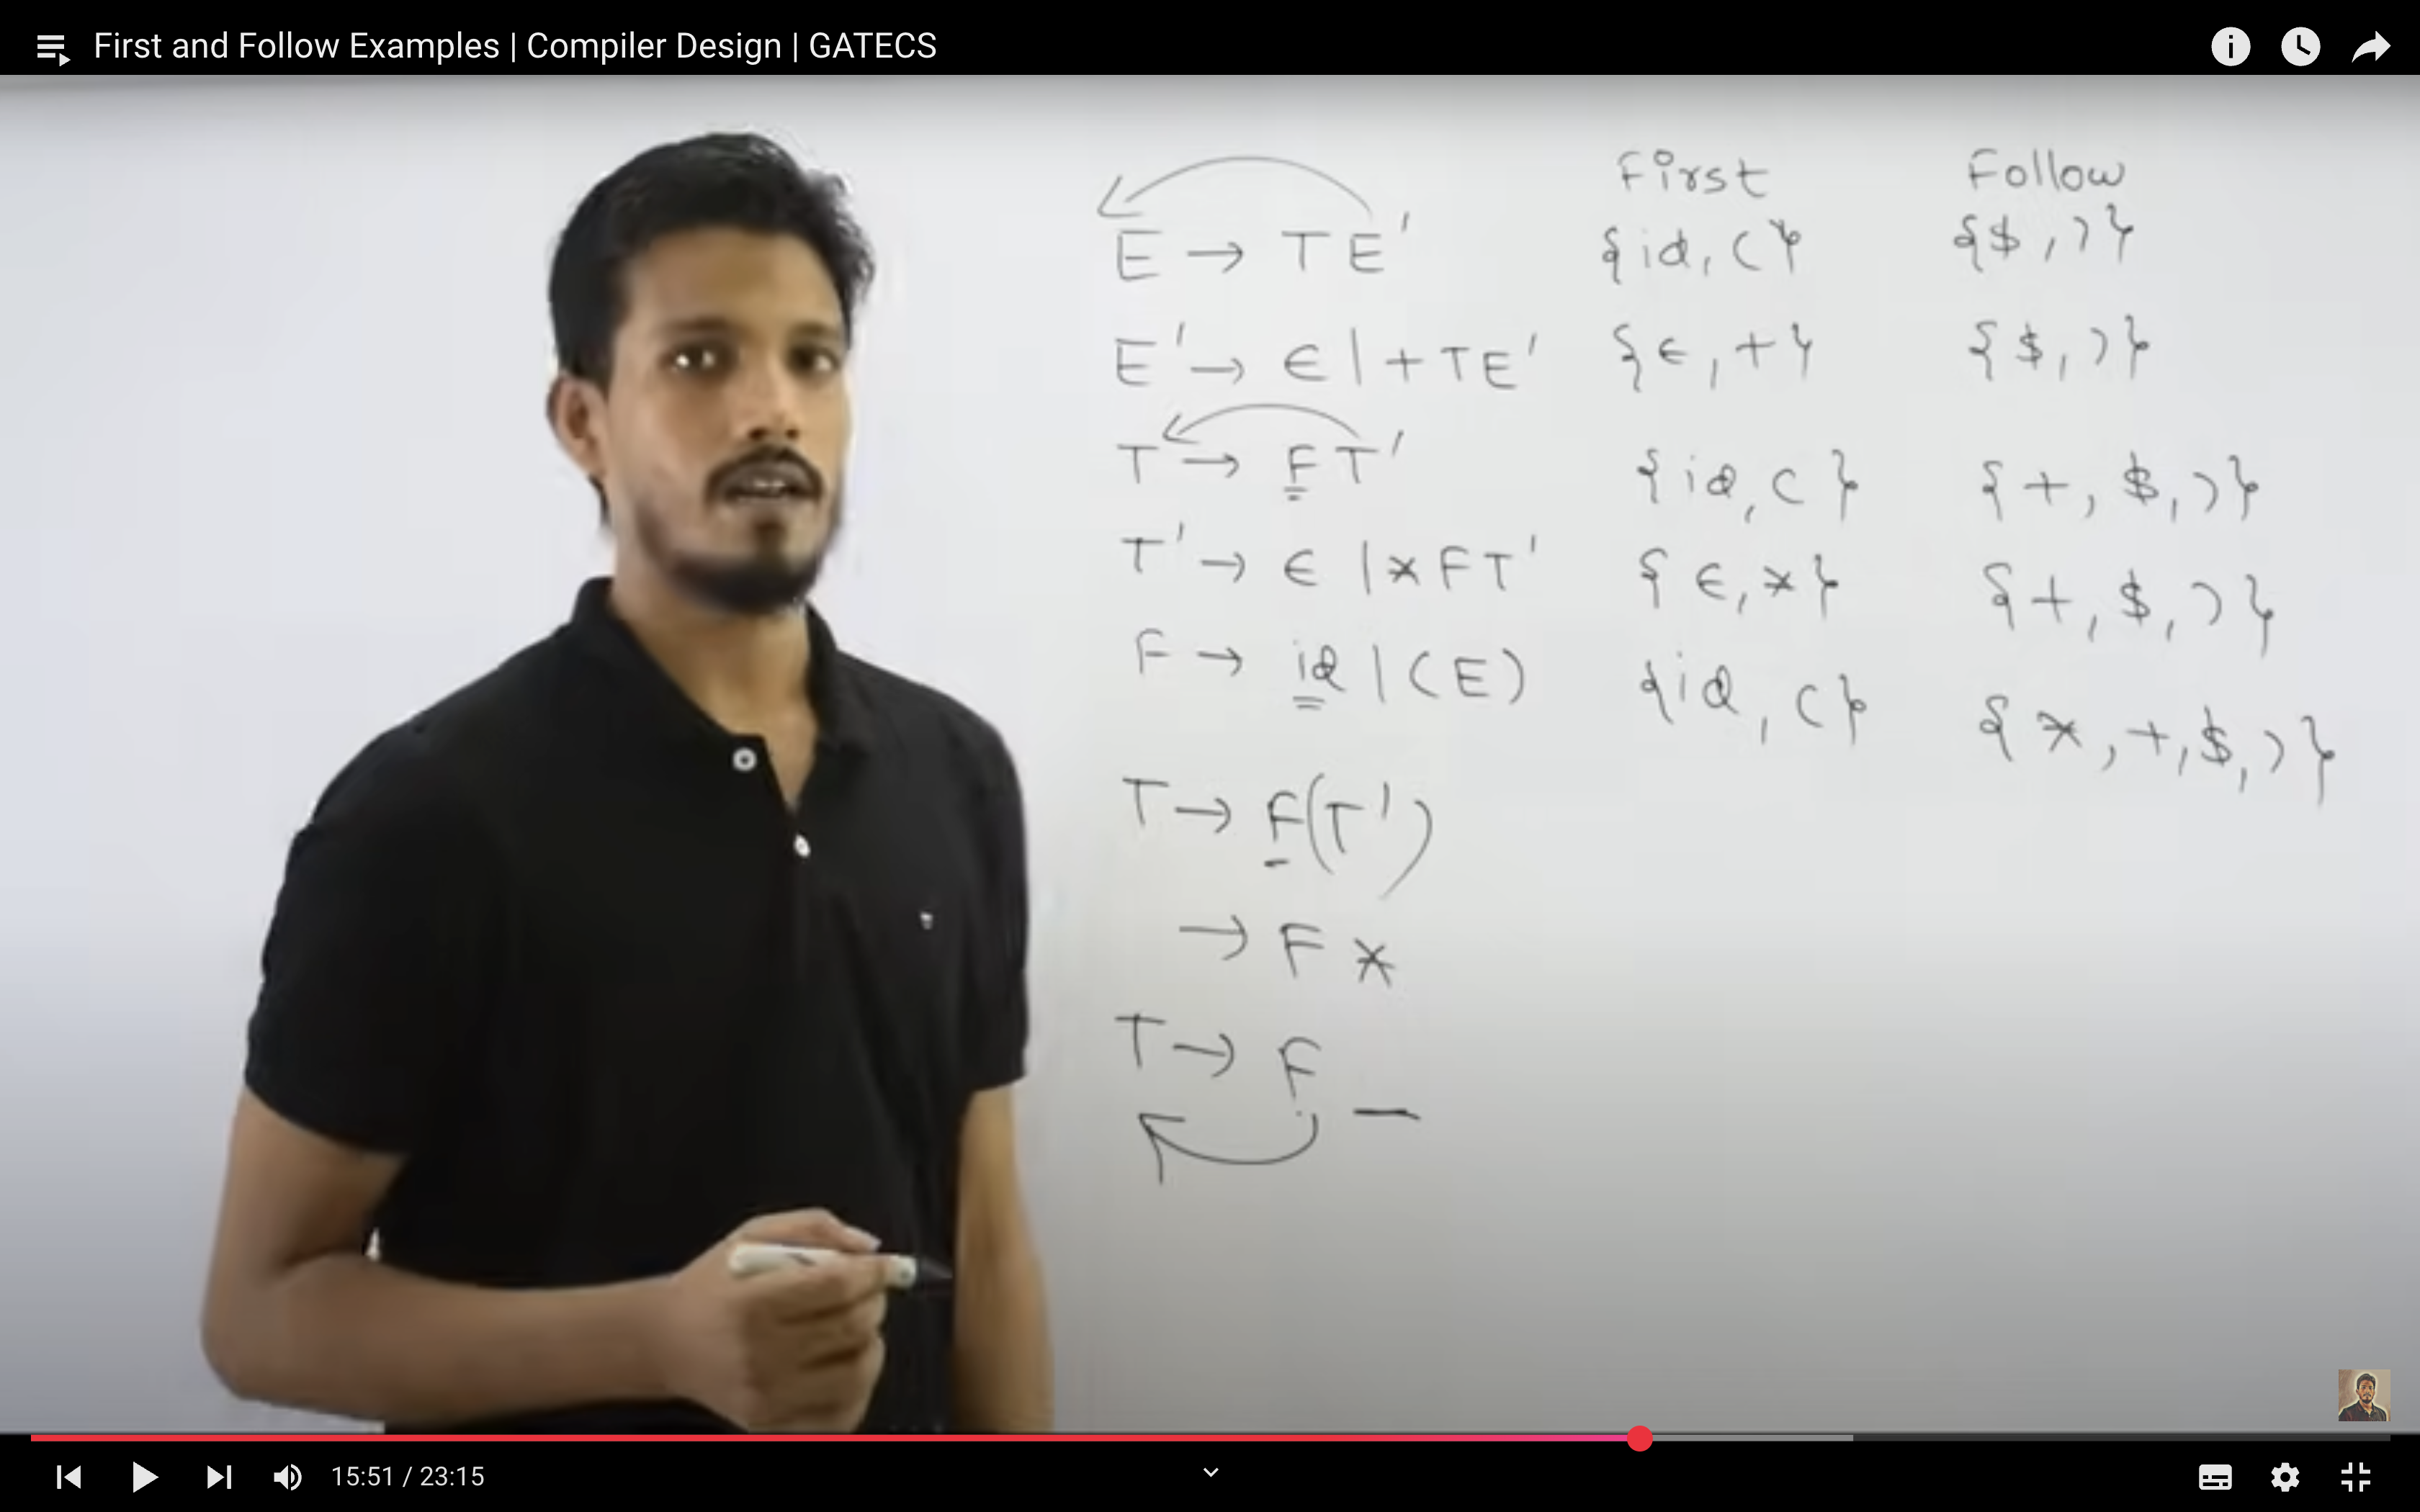 First and Follow Examples | Compiler Design | GATECS
First Follow
E → TE' {id, (} {$, )}
E' → ϵ | + TE' {ϵ, +} {$, )}
T → FT' {id, (} {+, $, )}
T' → ϵ | * FT' {ϵ, *} {+, $, )}
F → id | (E) {id, (} {*, +, $, )}
T → F(T')
→ F *
T → F
15:51 / 23:15